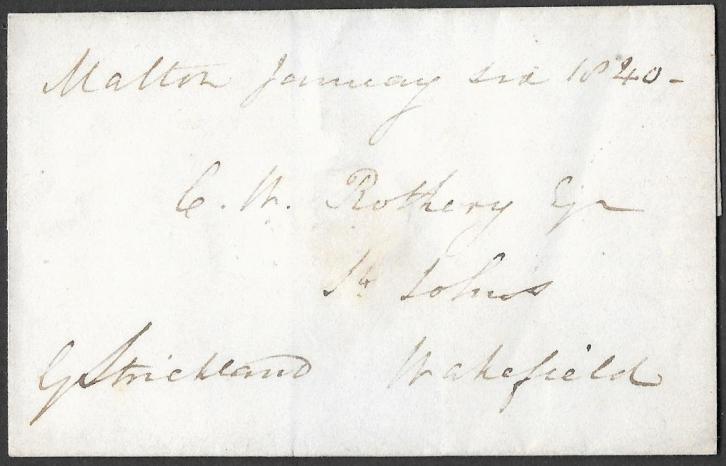 Malton January six 1840-
C. W. Rothery Esqr
St Johns
G Strickland Wakefield